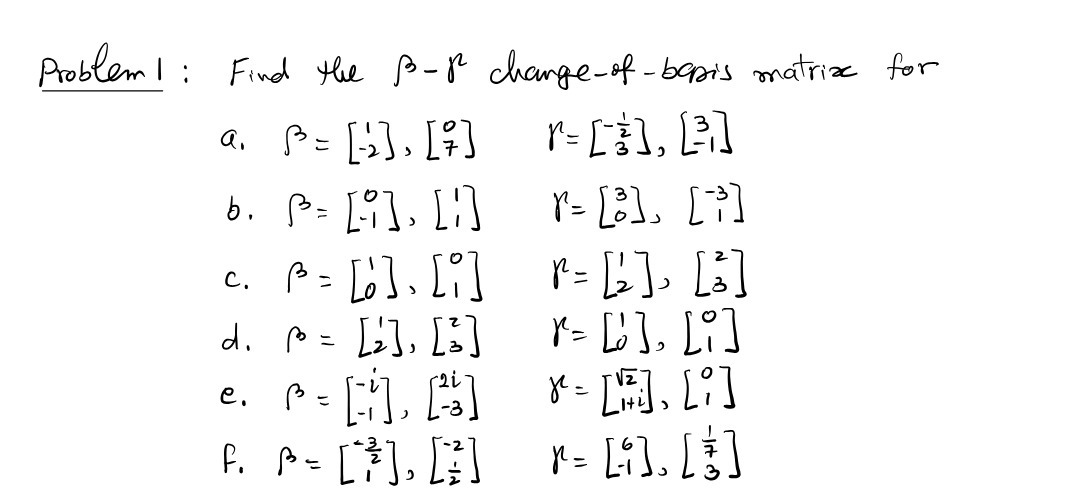 Problem 1 : Find the β-γ change-of-basis matrix for
a. β = [1 -2], [0 7] γ = [-1/2 3], [3 -1]
b. β = [0 -1], [1 1] γ = [3 0], [-3 1]
c. β = [1 0], [0 1] γ = [1 2], [2 3]
d. β = [1 2], [2 3] γ = [1 0], [0 1]
e. β = [-i -1], [2i -3] γ = [√2 1+i], [0 1]
f. β = [-3/2 1], [-2 1/2] γ = [6 -1], [1/7 3]